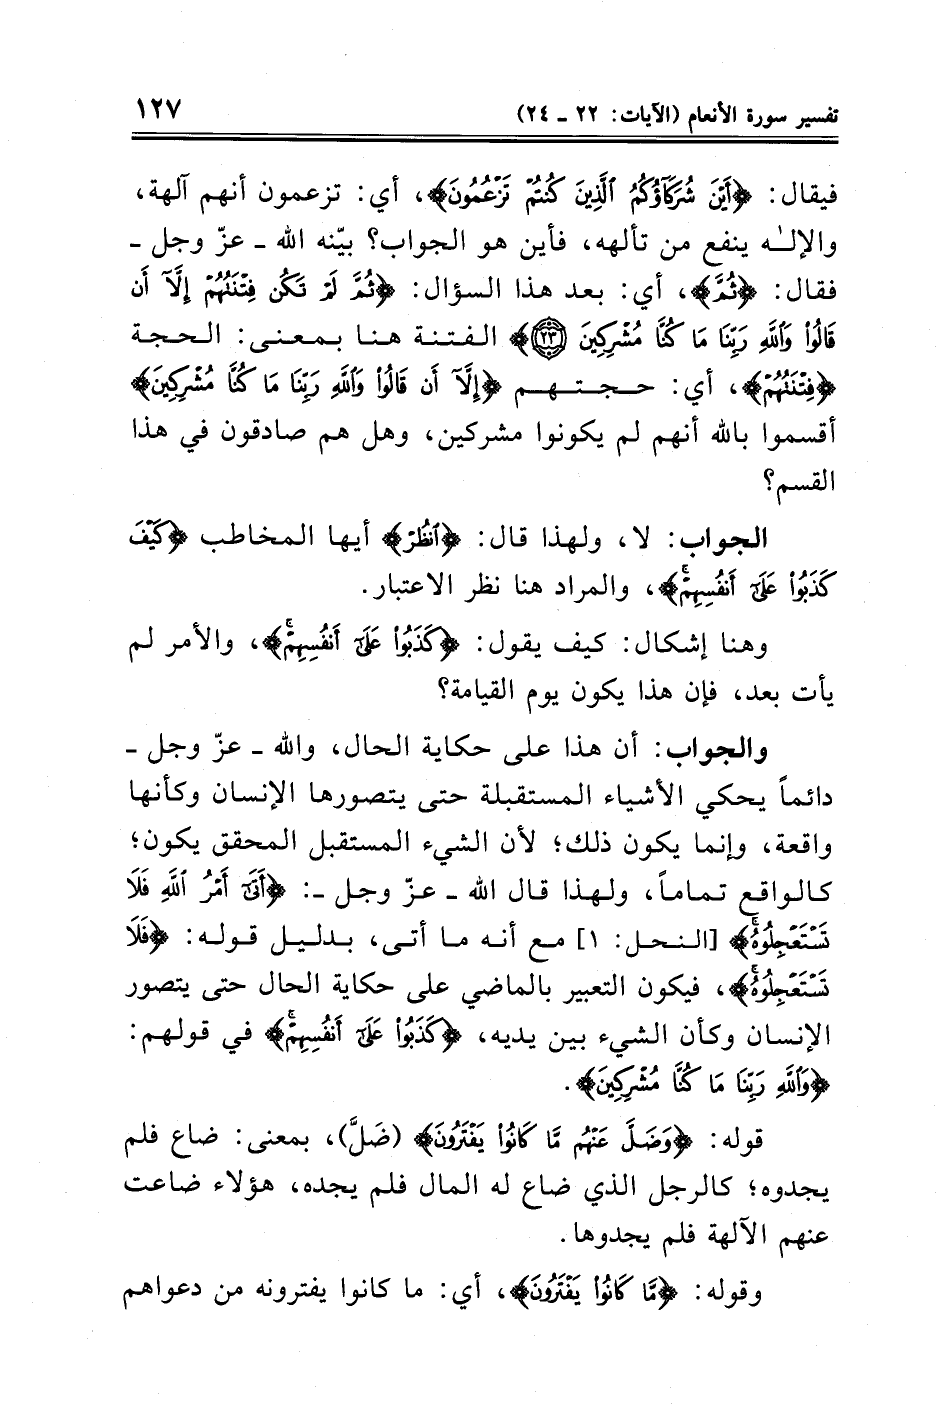 تفسير سورة الأنعام (الآيات: ٢٢ - ٢٤) ١٢٧
فيقال: ﴿أَيْنَ شُرَكَآؤُكُمُ ٱلَّذِينَ كُنتُمْ تَزْعُمُونَ﴾، أي: تزعمون أنهم آلهة،
والإلـٰه ينفع من تألهه، فأين هو الجواب؟ بيّنه الله - عزّ وجل -
فقال: ﴿ثُمَّ﴾، أي: بعد هذا السؤال: ﴿ثُمَّ لَمْ تَكُن فِتْنَتُهُمْ إِلَّآ أَن
قَالُوا۟ وَٱللَّهِ رَبِّنَا مَا كُنَّا مُشْرِكِينَ ٢٣﴾ الفتنة هنا بمعنى: الحجة
﴿فِتْنَتُهُمْ﴾، أي: حجتهم ﴿إِلَّآ أَن قَالُوا۟ وَٱللَّهِ رَبِّنَا مَا كُنَّا مُشْرِكِينَ﴾
أقسموا بالله أنهم لم يكونوا مشركين، وهل هم صادقون في هذا
القسم؟
الجواب: لا، ولهذا قال: ﴿ٱنظُرْ﴾ أيها المخاطب ﴿كَيْفَ
كَذَبُوا۟ عَلَىٰٓ أَنفُسِهِمْ ۚ﴾، والمراد هنا نظر الاعتبار.
وهنا إشكال: كيف يقول: ﴿كَذَبُوا۟ عَلَىٰٓ أَنفُسِهِمْ ۚ﴾، والأمر لم
يأت بعد، فإن هذا يكون يوم القيامة؟
والجواب: أن هذا على حكاية الحال، والله - عزّ وجل -
دائماً يحكي الأشياء المستقبلة حتى يتصورها الإنسان وكأنها
واقعة، وإنما يكون ذلك؛ لأن الشيء المستقبل المحقق يكون؛
كالواقع تماماً، ولهذا قال الله - عزّ وجل -: ﴿أَتَىٰٓ أَمْرُ ٱللَّهِ فَلَا
تَسْتَعْجِلُوهُ ۚ﴾ [النحل: ١] مع أنه ما أتى، بدليل قوله: ﴿فَلَا
تَسْتَعْجِلُوهُ ۚ﴾، فيكون التعبير بالماضي على حكاية الحال حتى يتصور
الإنسان وكأن الشيء بين يديه، ﴿كَذَبُوا۟ عَلَىٰٓ أَنفُسِهِمْ ۚ﴾ في قولهم:
﴿وَٱللَّهِ رَبِّنَا مَا كُنَّا مُشْرِكِينَ﴾.
قوله: ﴿وَضَلَّ عَنْهُم مَّا كَانُوا۟ يَفْتَرُونَ﴾ (ضَلَّ)، بمعنى: ضاع فلم
يجدوه؛ كالرجل الذي ضاع له المال فلم يجده، هؤلاء ضاعت
عنهم الآلهة فلم يجدوها.
وقوله: ﴿مَّا كَانُوا۟ يَفْتَرُونَ﴾، أي: ما كانوا يفترونه من دعواهم